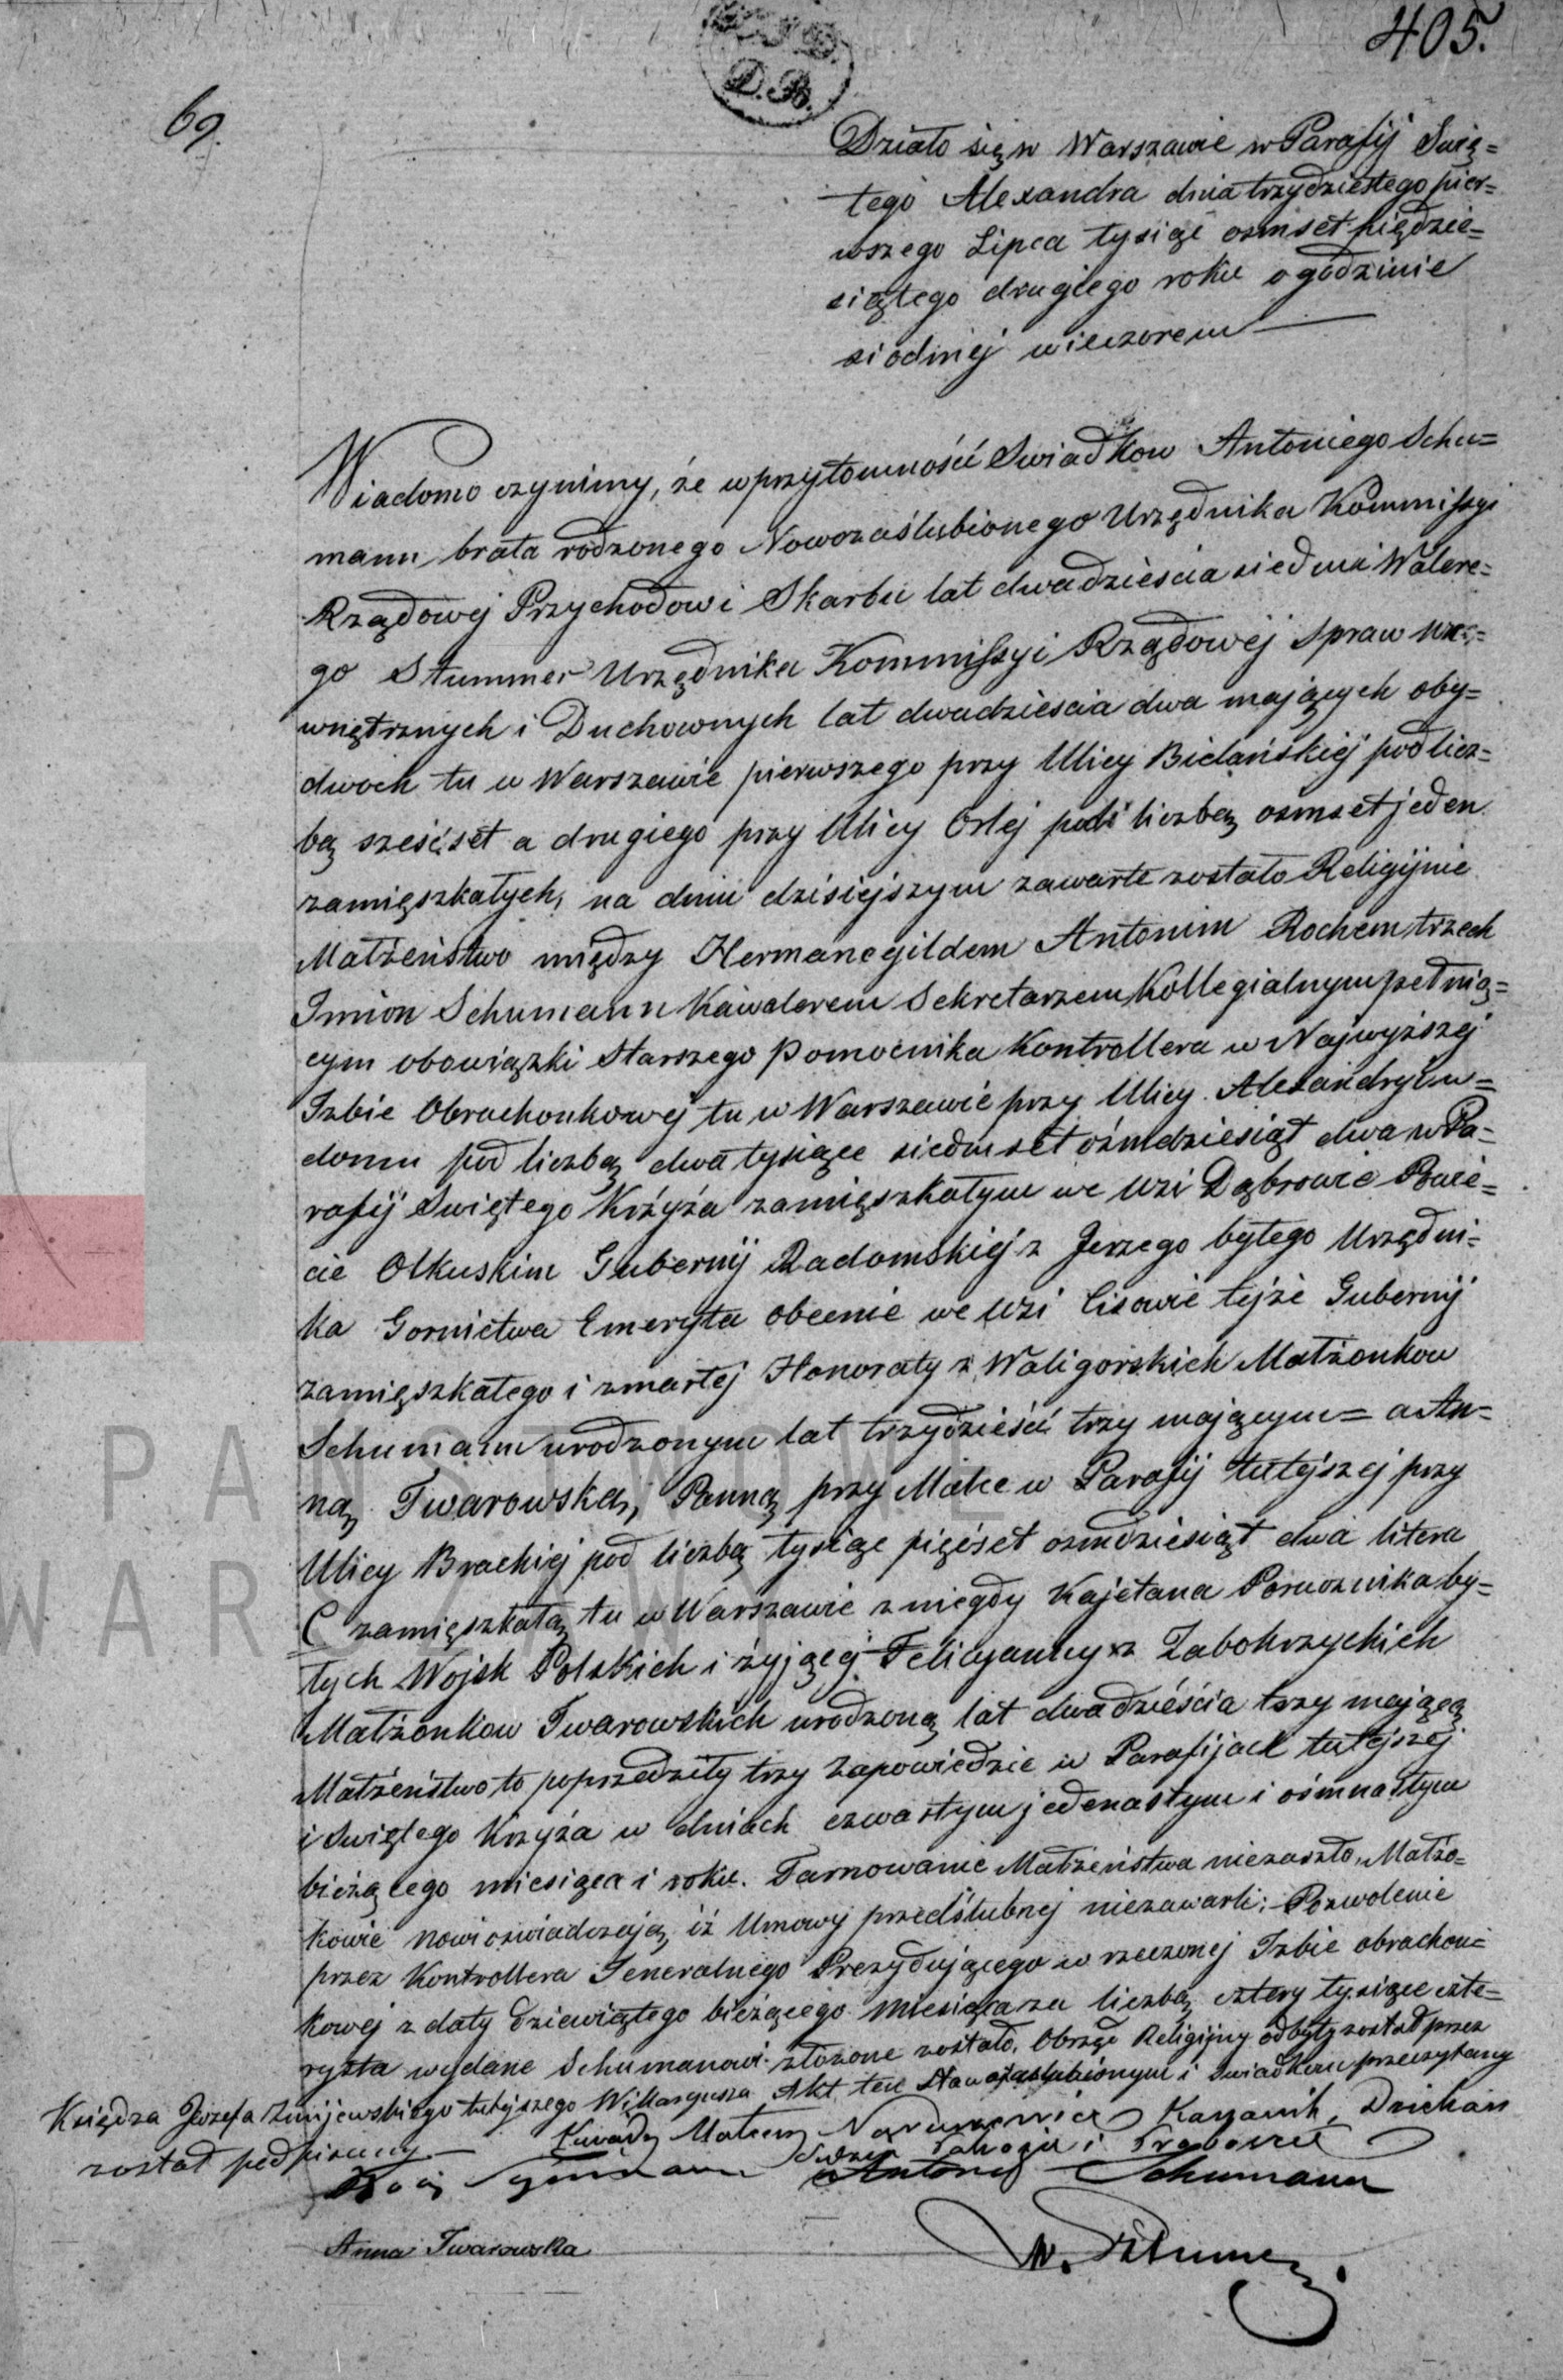 405.
D.P.
69.
Działo się w Warszawie w Parafij Świę=
tego Alexandra dnia trzydziestego pier=
wszego Lipca tysiąc ośmset pięćdzie=
siątego drugiego roku o godzinie
siódmej wieczorem
Wiadomo czynimy, że w przytomności Swiadkow Antoniego Schu=
mann brata rodzonego Nowozaślubionego Urzędnika Kommissyi
Rządowej Przychodow i Skarbu lat dwadzieścia siedm i Walere=
go Stummer Urzędnika Kommissyi Rządowej Spraw We=
wnętrznych i Duchownych lat dwadzieścia dwa mających oby=
dwoch tu w Warszawie pierwszego przy Ulicy Bielańskiej pod licz=
bą sześćset a drugiego przy Ulicy Orlej pod liczbą ośmset jeden
zamięszkałych, na dniu dzisiejszym zawarte zostało Religijnie
Małżeństwo między Hermanegildem Antonim Rochem trzech
Imion Schumann Kawalerem Sekretarzem Kollegialnym pełnią=
cym obowiązki Starszego Pomocnika Kontrollera w Najwyższej
Izbie Obrachonkowej tu w Warszawie przy Ulicy Alexandryi w=
domu pod liczbą dwa tysiące siedmset ośmdziesiąt dwa w Pa=
rafij Swiętego Krzyża zamięszkałym we Wsi Dąbrowie Powie=
cie Olkuskim Gubernij Radomskiej z Jerzego byłego Urzędni=
ka Gornictwa Emeryta obecnie we Wsi Lisowie tejże Gubernij
zamięszkałego i zmarłej Honoraty z Waligorskich Małżonkow
Schumann urodzonym lat trzydzieści trzy mającym= a An=
ną Twarowską, Panną przy Matce w Parafij tutejszej przy
Ulicy Brackiej pod liczbą tysiąc pięćset ośmdziesiąt dwa litera
C zamięszkałą tu w Warszawie z niegdy Kajetana Porucznika by=
łych Wojsk Polskich i żyjącej Felicyanny z Zabokrzyckich
Małżonkow Twarowskich urodzoną lat dwadzieścia trzy mającą
Małżeństwo to poprzedziły trzy Zapowiedzie w Parafijach tutejszej
i Swiętego Krzyża w dniach czwartym jedenastym i ośmnastym
bieżącego miesiąca i roku. Tamowanie Małżeństwa niezaszło, Małżo=
kowie nowi oswiadczają, iż Umowy przedślubnej niezawarli; Pozwolenie
przez Kontrollera Jeneralnego Prezydującego w rzeczonej Izbie obrachon=
kowej z daty dziewiątego bieżącego miesiąca za liczbą cztery tysiące czte=
rysta wydane Schumanowi złożone zostało. Obrzęd Religijny odbyty został przez
Księdza Jozefa Żmijewskiego tutejszego Wikaryusza Akt ten Nowozaślubionym i Swiadkom przeczytany
został podpisany
Antoni Schumann
Anna Twarowska
PAŃSTWOWE
WARSZAWY